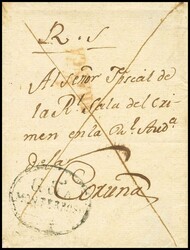 R. S
Al Señor Fiscal de
la Rl. Sala del Cri-
men en la Rl. Auda.
de la
Coruña